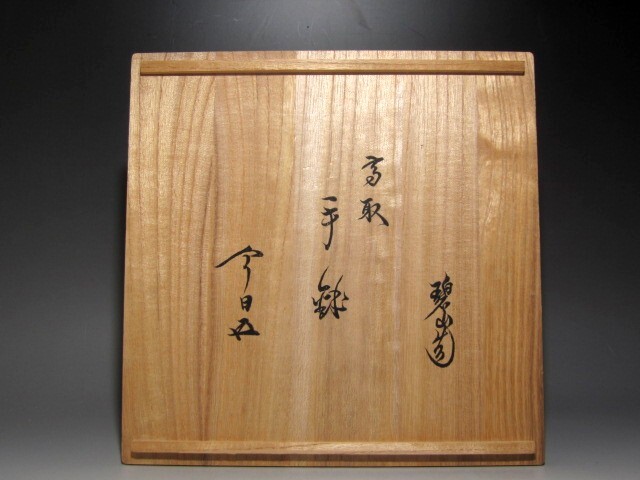 碧山造
高取
手鉢
今日庵